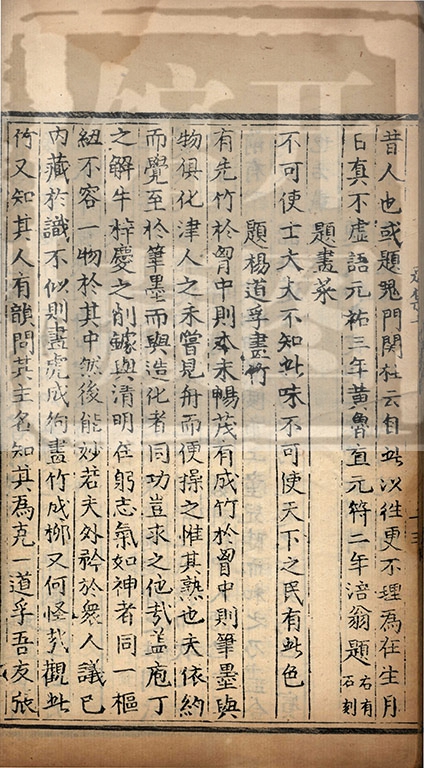 昔人也或題鬼門関柱云自此以往更不理爲在生月
日真不虚語元祐三年黄魯直元符二年涪翁題右有石刻
題畫菜
不可使士大夫不知此味不可使天下之民有此色
題楊道孚畫竹
有先竹於胷中則本末暢茂有成竹於胷中則筆墨與
物俱化津人之未嘗見舟而便操之惟其熟也夫依約
而覺至於筆墨而與造化者同功豈求之他哉盖庖丁
之解牛梓慶之削鐻與清明在躬志氣如神者同一樞
紐不容一物於其中然後能妙若夫外矜於衆人議已
内藏於識不似則畫虎成狗畫竹成栁又何怪哉觀此
竹又知其人有韻問其主名知其爲克一道孚吾友張